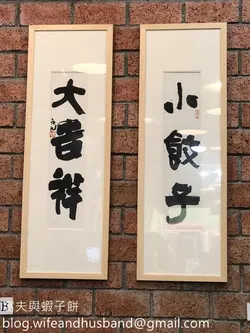 小餃子
大吉祥
夫與蝦子餅
blog.wifeandhusband@gmail.com